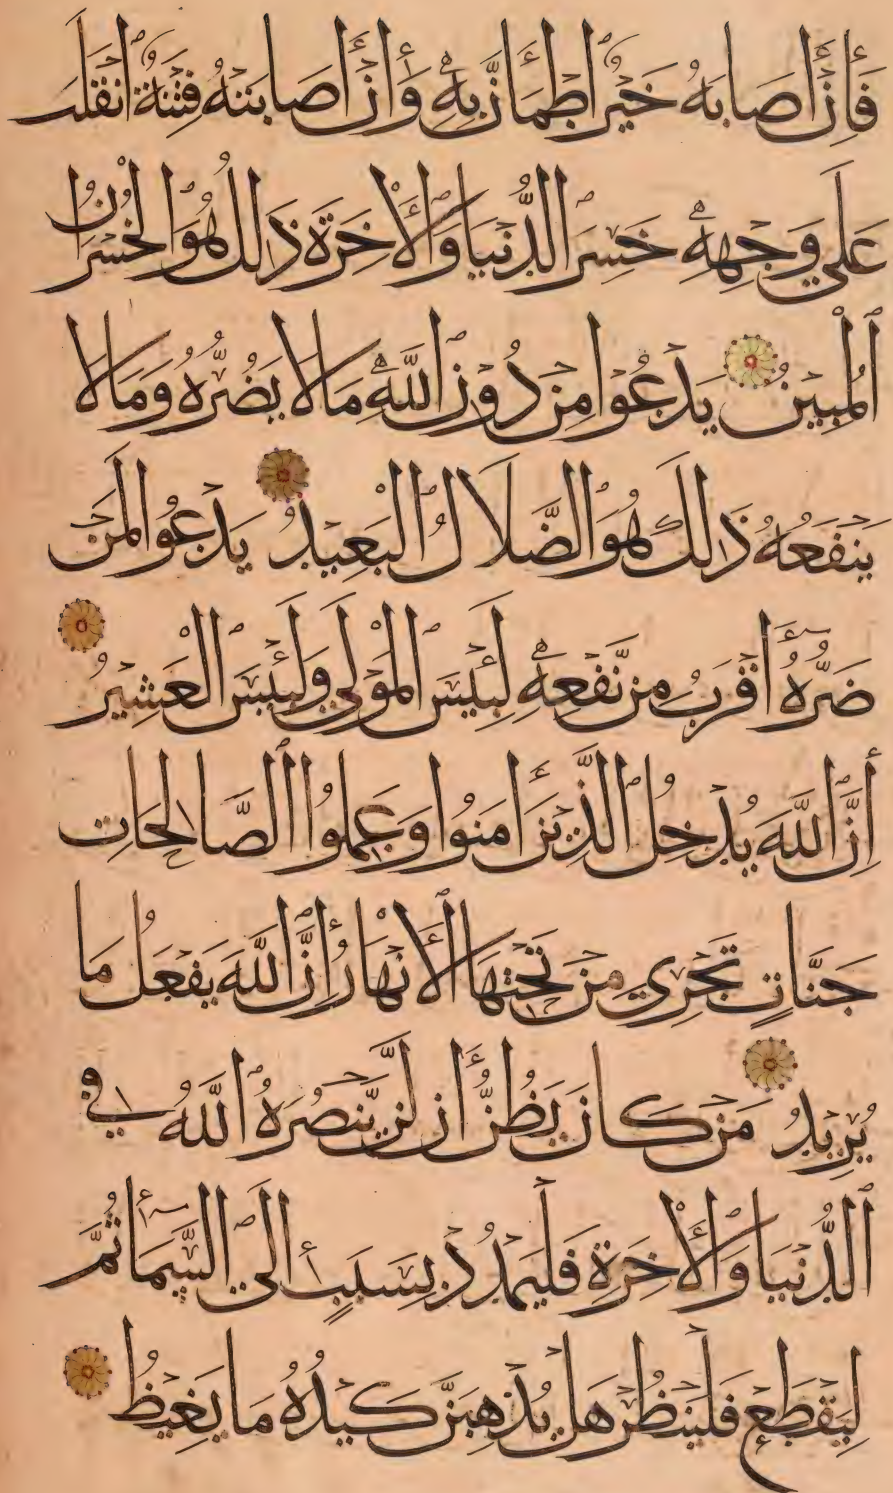 فَإِنْ أَصَابَهُ خَيْرٌ اطْمَأَنَّ بِهِ وَإِنْ أَصَابَتْهُ فِتْنَةٌ انْقَلَبَ
عَلَى وَجْهِهِ خَسِرَ الدُّنْيَا وَالْأَخِرَةَ ذَلِكَ هُوَ الْخُسْرَانُ
الْمُبِينُ يَدْعُوا مِنْ دُونِ اللَّهِ مَا لَا يَضُرُّهُ وَمَا لَا
يَنْفَعُهُ ذَلِكَ هُوَ الضَّلَالُ الْبَعِيدُ يَدْعُوا لَمَنْ
ضَرُّهُ أَقْرَبُ مِنْ نَّفْعِهِ لَبِئْسَ الْمَوْلَى وَلَبِئْسَ الْعَشِيرُ
إِنَّ اللَّهَ يُدْخِلُ الَّذِينَ امَنُوا وَعَمِلُوا الصَّالِحَاتِ
جَنَّاتٍ تَجْرِي مِنْ تَحْتِهَا الْأَنْهَارُ إِنَّ اللَّهَ يَفْعَلُ مَا
يُرِيدُ مَنْ كَانَ يَظُنُّ أَنْ لَنْ يَّنْصُرَهُ اللَّهُ فِي
الدُّنْيَا وَالْأَخِرَةِ فَلْيَمْدُدْ بِسَبَبٍ إِلَى السَّمَاءِ ثُمَّ
لِيَقْطَعْ فَلْيَنْظُرْ هَلْ يُذْهِبَنَّ كَيْدُهُ مَا يَغِيظُ